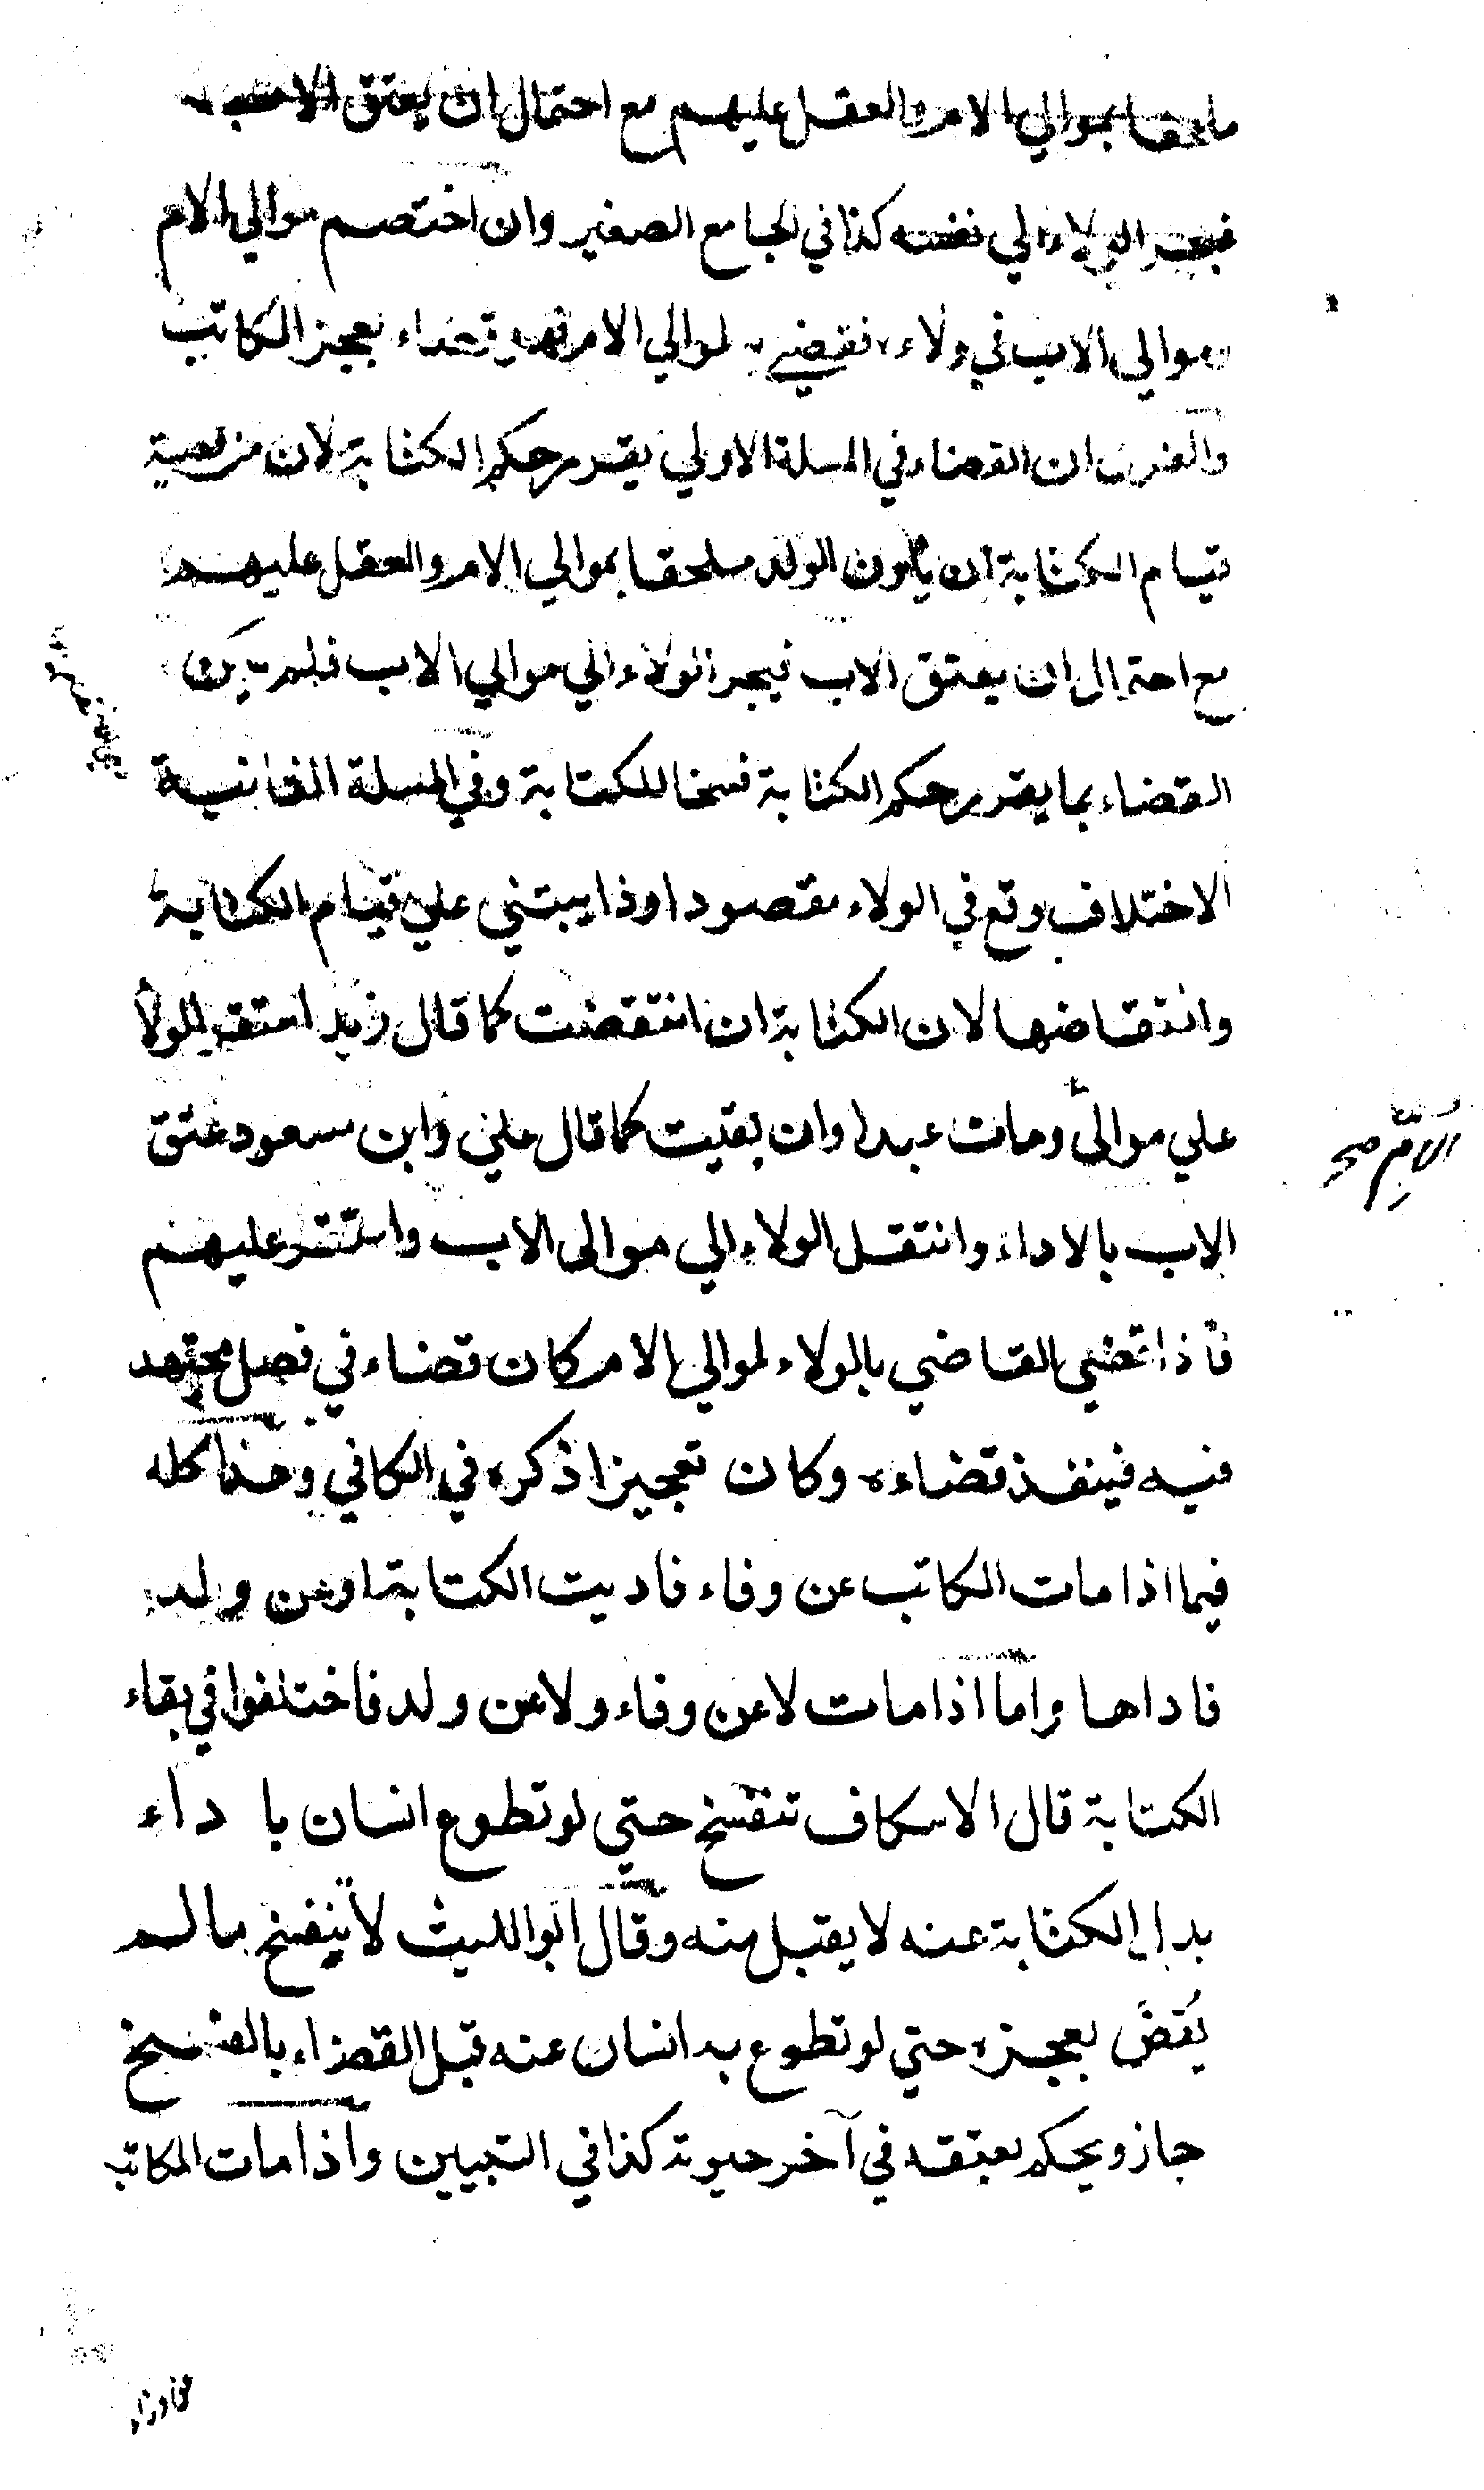 ملحقا بموالي الام والعقل عليهم مع احتمال ان يعتق الاب
فيجر الولاء الي نفسه كذا في الجامع الصغير وان اختصم موالي الام
وموالي الاب في ولاءه فقضي به لموالي الام فهو قضاء بعجز المكاتب
والفرق ان القضاء في المسلة الاولي يقرر حكم الكتابة لان من قضية
قيام الكتابة ان يكون الولد ملحقا بموالي الام والعقل عليهم
مع احتمال ان يعتق الاب فيجر الولاء الي موالي الاب فلم يكن
القضاء بما يقرر حكم الكتابة فسخا للكتابة وفي المسلة الثانية
الاختلاف وقع في الولاء مقصودا وذا يبتني علي قيام الكتابة
وانتقاضها لان الكتابة ان انتقضت كما قال زيد استقر الولا
علي موالي ومات عبدا وان بقيت كما قال علي وابن مسعود عتق
الام صح
الاب بالاداء وانتقل الولاء الي موالي الاب واستقر عليهم
فاذا قضي القاضي بالولاء لموالي الام كان قضاء في فصل مجتهد
فيه فينفذ قضاءه وكان تعجيزا ذكره في الكافي وهذا كله
فيما اذا مات المكاتب عن وفاء فاديت الكتابة او عن ولد
فاداها واما اذا مات لا عن وفاء ولا عن ولد فاختلفوا في بقاء
الكتابة قال الاسكاف تنفسخ حتي لو تطوع انسان با داء
بدل الكتابة عنه لا يقبل منه وقال ابو الليث لا ينفسخ مالم
يقض بعجزه حتي لو تطوع به انسان عنه قبل القضاء بالفسخ
جاز ويحكم بعتقه في آخر حيوته كذا في التبيين واذا مات المكاتب